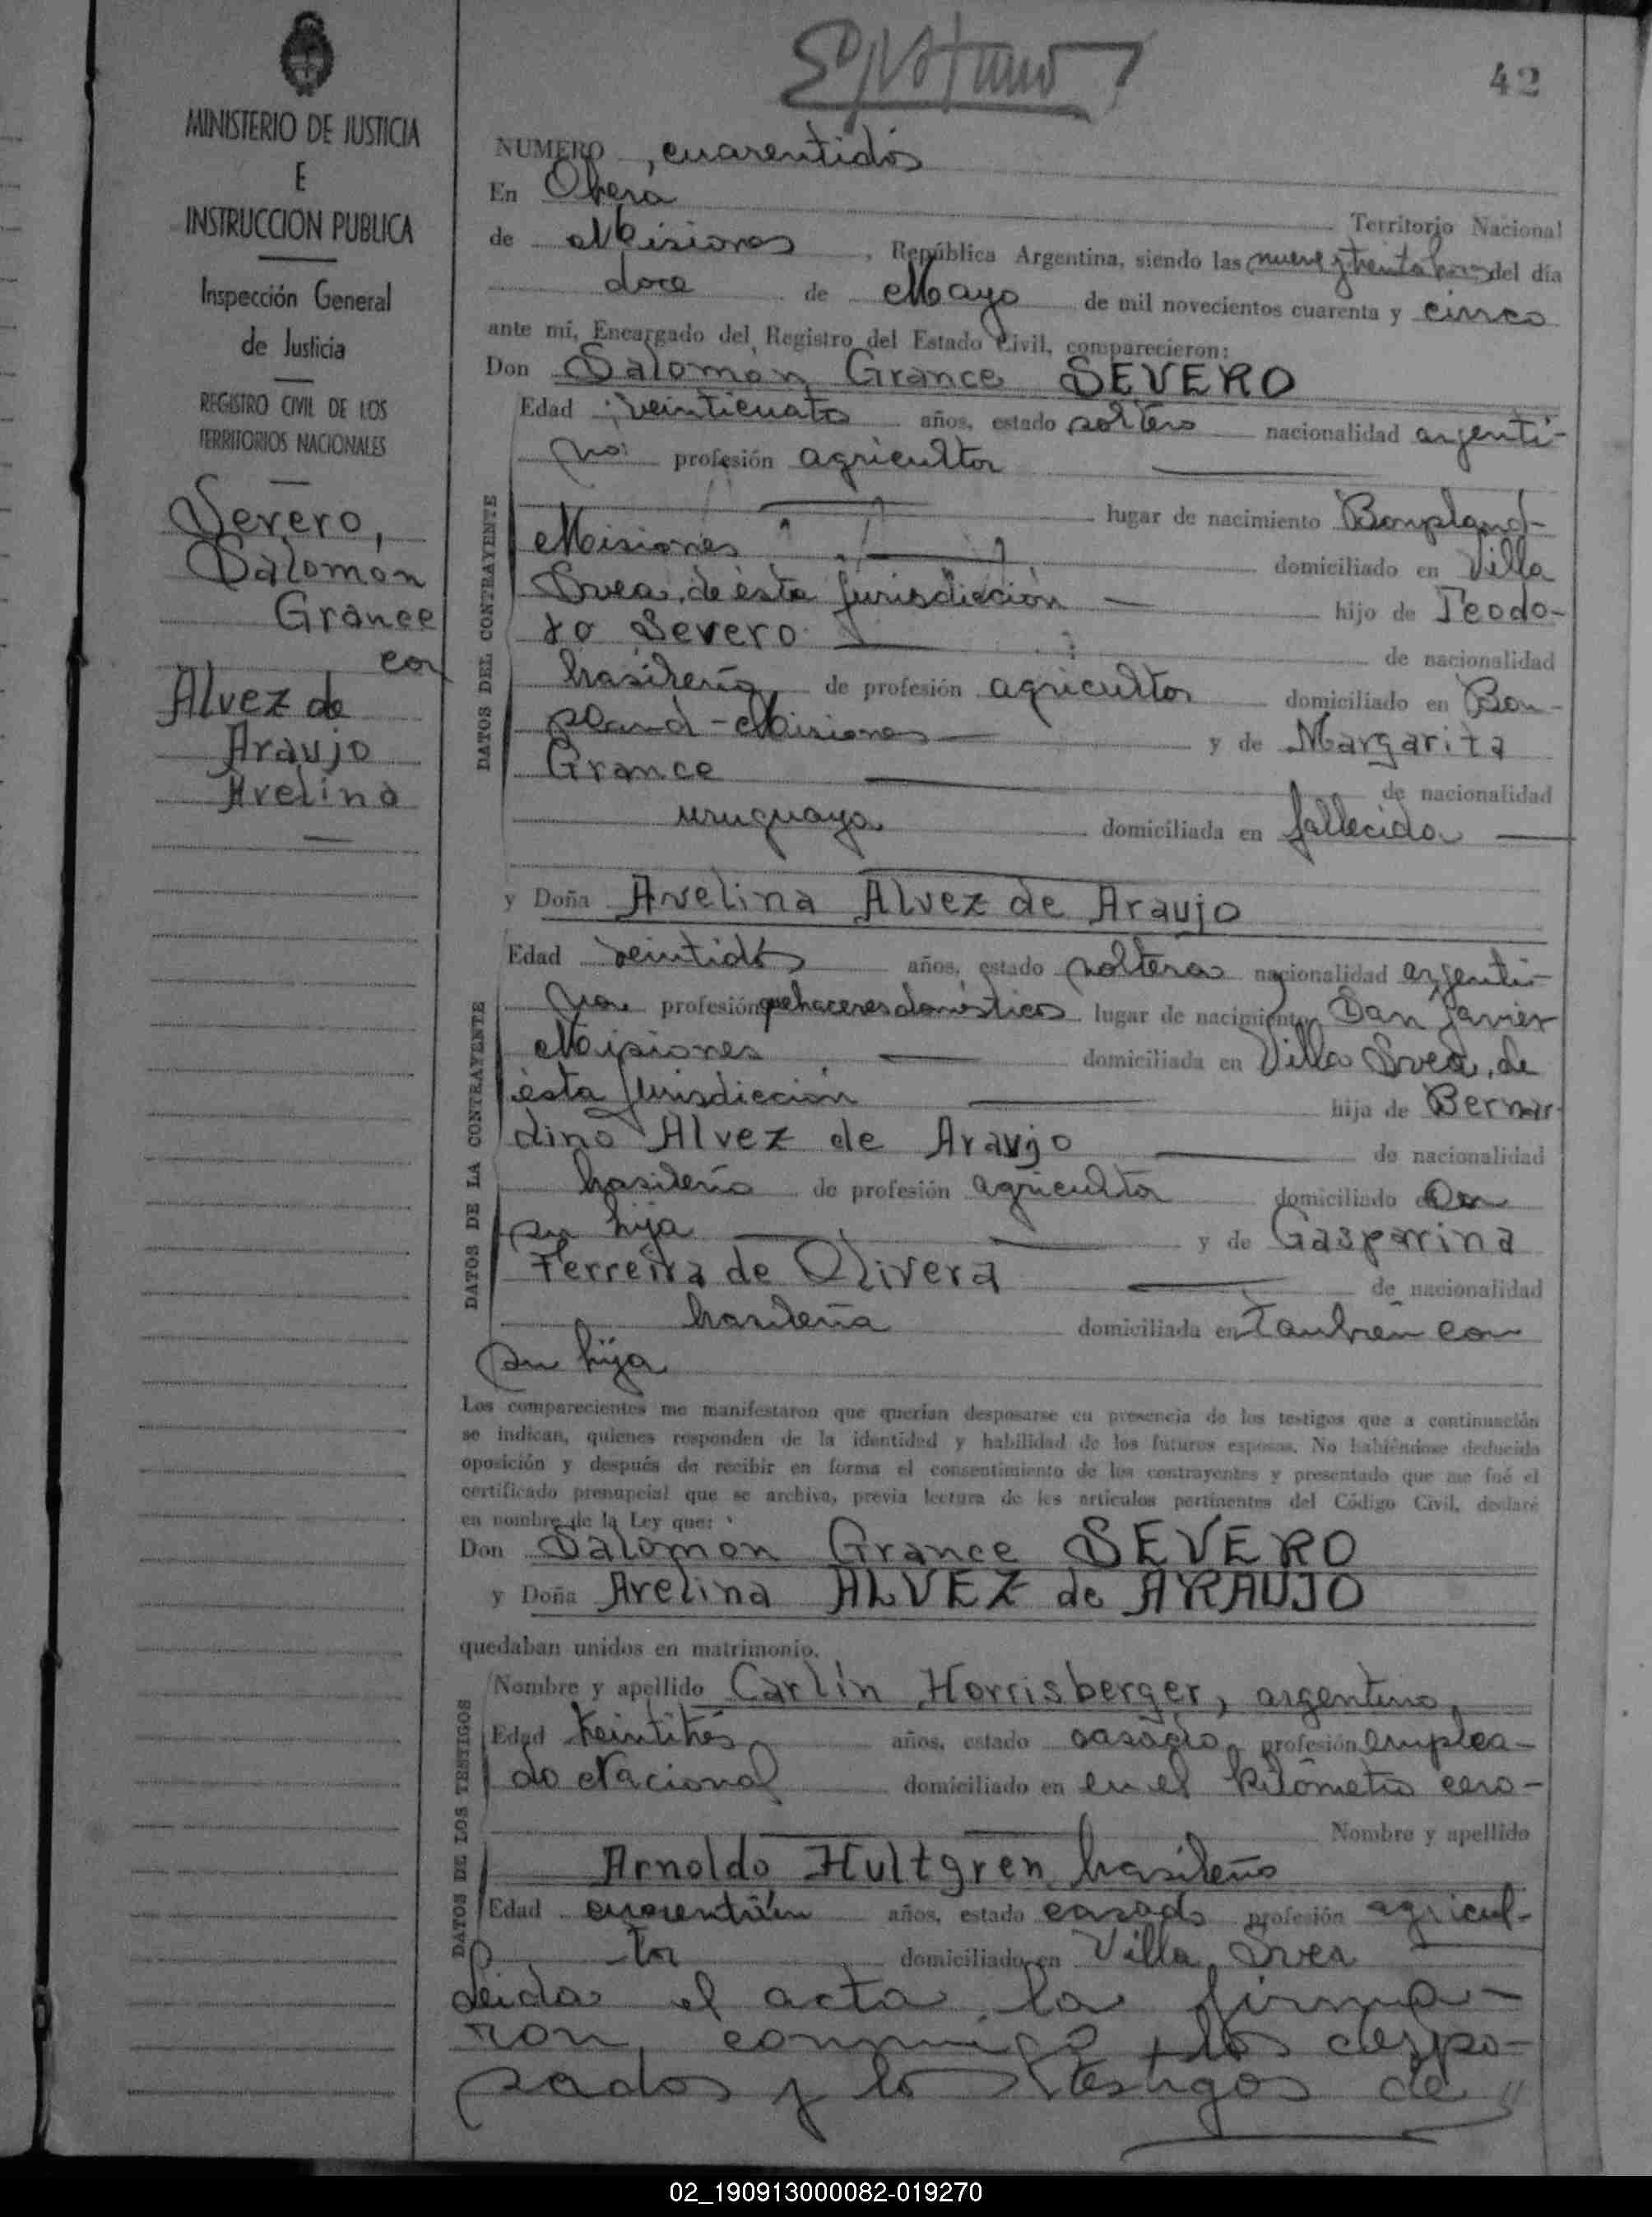 42
MINISTERIO DE JUSTICIA
E
INSTRUCCION PUBLICA
Inspección General
de Justicia
REGISTRO CIVIL DE LOS
TERRITORIOS NACIONALES
Severo,
Salomon
Grance
con
Alvez de
Araujo
Avelina
NUMERO cuarentidós
En Oberá Territorio Nacional
de Misiones, República Argentina, siendo las nueve y treinta horas del día
doce de Mayo de mil novecientos cuarenta y cinco
ante mí, Encargado del Registro del Estado Civil, comparecieron:
Don Salomon Grance SEVERO
DATOS DEL CONTRAYENTE
Edad veinticuatro años, estado soltero nacionalidad argenti-
no profesión agricultor
lugar de nacimiento Bonpland-
Misiones domiciliado en Villa
Svea, de ésta Jurisdicción hijo de Teodo-
ro Severo de nacionalidad
brasileña, de profesión agricultor domiciliado en Bon-
pland-Misiones y de Margarita
Grance de nacionalidad
uruguaya domiciliada en fallecida
y Doña Avelina Alvez de Araujo
DATOS DE LA CONTRAYENTE
Edad veintidós años, estado soltera nacionalidad argenti-
na profesión quehaceres domésticos lugar de nacimiento San Javier
Misiones domiciliada en Villa Svea, de
ésta Jurisdicción hija de Bernar-
dino Alvez de Araujo de nacionalidad
brasileña de profesión agricultor domiciliado con
su hija y de Gasparina
Ferreira de Olivera de nacionalidad
brasileña domiciliada en también con
su hija
Los comparecientes me manifestaron que querían desposarse en presencia de los testigos que a continuación
se indican, quienes responden de la identidad y habilidad de los futuros esposos. No habiéndose deducido
oposición y después de recibir en forma el consentimiento de los contrayentes y presentado que me fué el
certificado prenupcial que se archiva, previa lectura de los artículos pertinentes del Código Civil, declaré
en nombre de la Ley que:
Don Salomon Grance SEVERO
y Doña Avelina ALVEZ de ARAUJO
quedaban unidos en matrimonio.
DATOS DE LOS TESTIGOS
Nombre y apellido Carlín Horrisberger, argentino,
Edad treintitrés años, estado casado, profesión emplea-
do Nacional domiciliado en en el kilómetro cero-
Nombre y apellido
Arnoldo Hultgren, brasileño
Edad cuarentiún años, estado casado profesión agricul-
tor domiciliado en Villa Svea
Leida el acta la firma-
ron conmigo los despo-
sados y los testigos de "
02_190913000082-019270